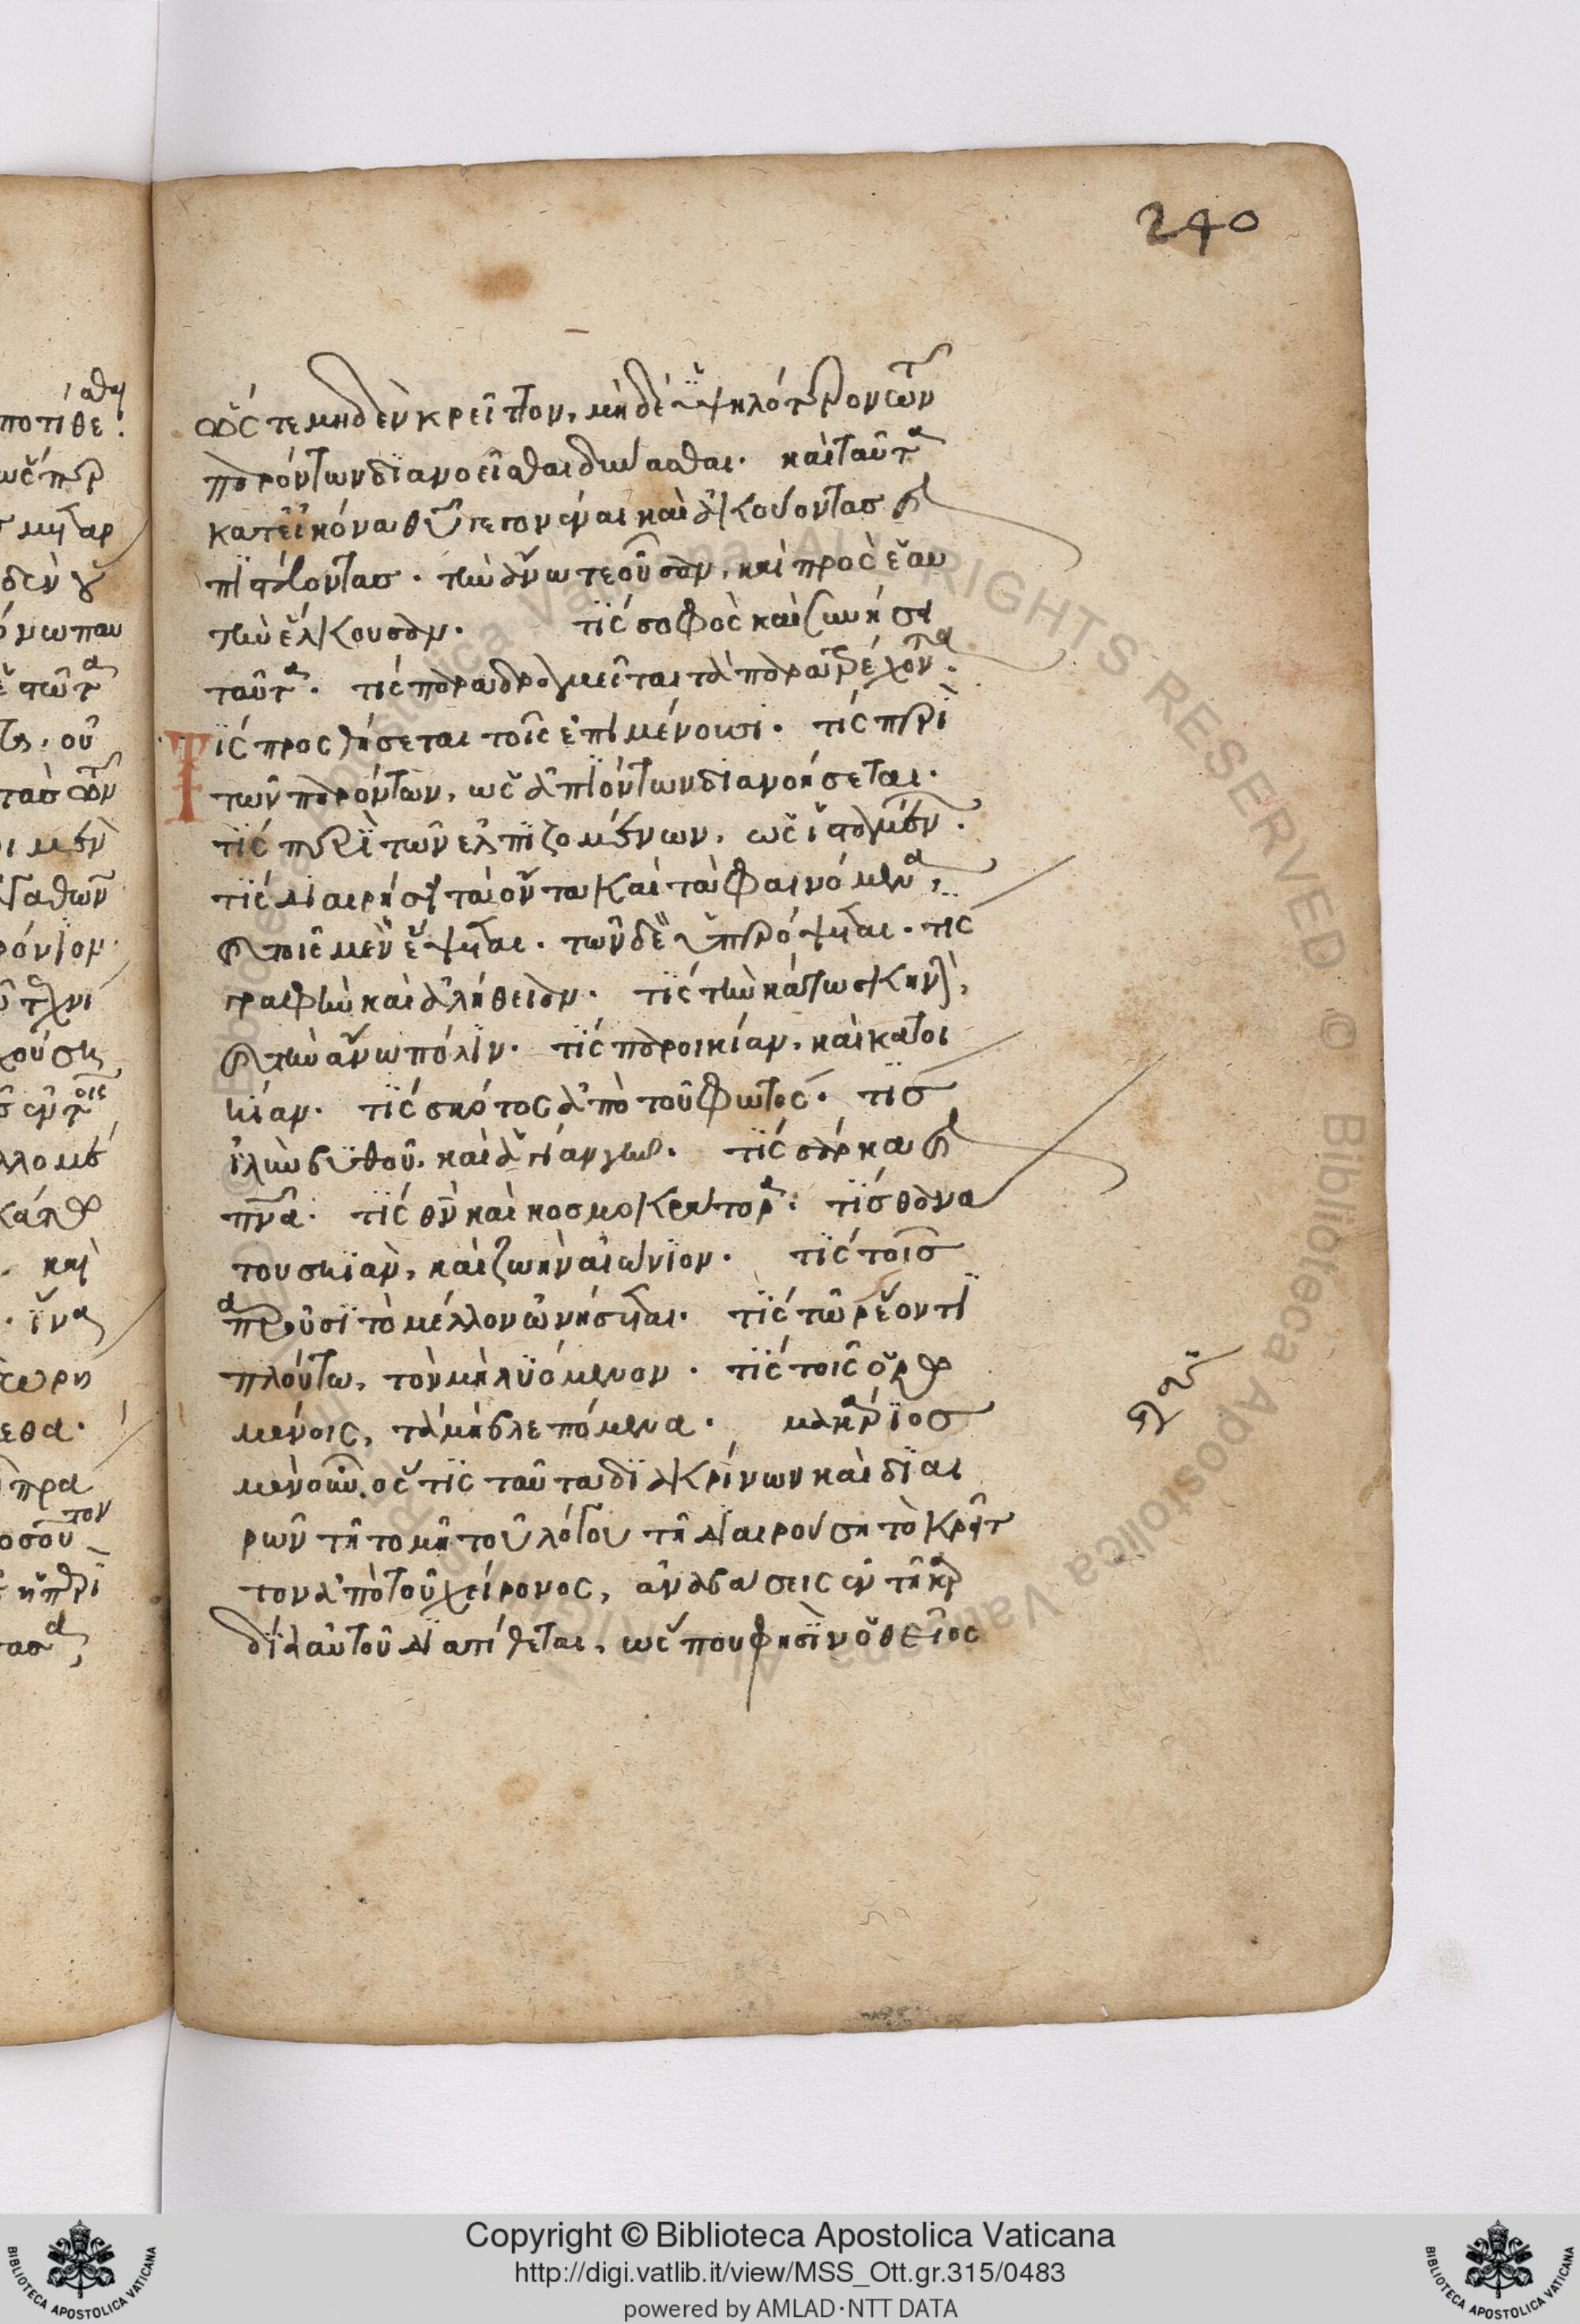 240
ὥς τε μηδὲν κρεῖττον, μηδὲ ὑψηλότερον τῶν
παρόντων διανοεῖσθαι δύνασθαι. καὶ ταῦτα
κατ' εἰκόνα θεοῦ γεγονέναι καὶ ἀκούοντας καὶ
πιστεύοντας. τὴν ἄνω τε οὖσαν, καὶ πρὸς ἑαυ
τὴν ἕλκουσαν. τίς σοφὸς καὶ συνήσει
ταῦτα. τίς παραδραμεῖται τὰ παρατρέχοντα.
Τίς προσθήσεται τοῖς ἐπιμένουσι. τίς περὶ
τῶν παρόντων, ὡς ἀπιόντων διανοήσεται.
τίς περὶ τῶν ἐλπιζομένων, ὡς ἱσταμένων.
τίς διαιρήσει τὰ ὄντα καὶ τὰ φαινόμενα,
καὶ τοῖς μὲν ἕψεται. τῶν δὲ ὑπερόψεται. τίς
γραφὴν καὶ ἀλήθειαν. τίς τὴν κάτω σκηνὴν,
καὶ τὴν ἄνω πόλιν. τίς παροικίαν, καὶ κατοι
κίαν. τίς σκότος ἀπὸ τοῦ φωτός. τίς
ἰλὺν βυθοῦ, καὶ ἁγίαν γῆν. τίς σάρκα καὶ
πνα. τίς θν καὶ κοσμοκράτορα. τίς θανά
του σκιὰν, καὶ ζωὴν αἰώνιον. τίς τοῖς
παροῦσι τὸ μέλλον ὠνήσεται. τίς τῶ ῥέοντι
πλούτω, τὸν μὴ λυόμενον. τίς τοῖς ὁρω
μένοις, τὰ μὴ βλεπόμενα. μακάριος
μὲν οὖν, ὅς τις ταῦτα διακρίνων καὶ διαι
ρῶν τῆ τομῆ τοῦ λόγου τῆ διαιρούση τὸ κρεῖτ
τον ἀπὸ τοῦ χείρονος, ἀναβάσεις ἐν τῆ καρ
δία αὐτοῦ διατίθεται, ὥς πού φησιν ὁ θεῖος
δαδ
Copyright © Biblioteca Apostolica Vaticana
http://digi.vatlib.it/view/MSS_Ott.gr.315/0483
powered by AMLAD·NTT DATA